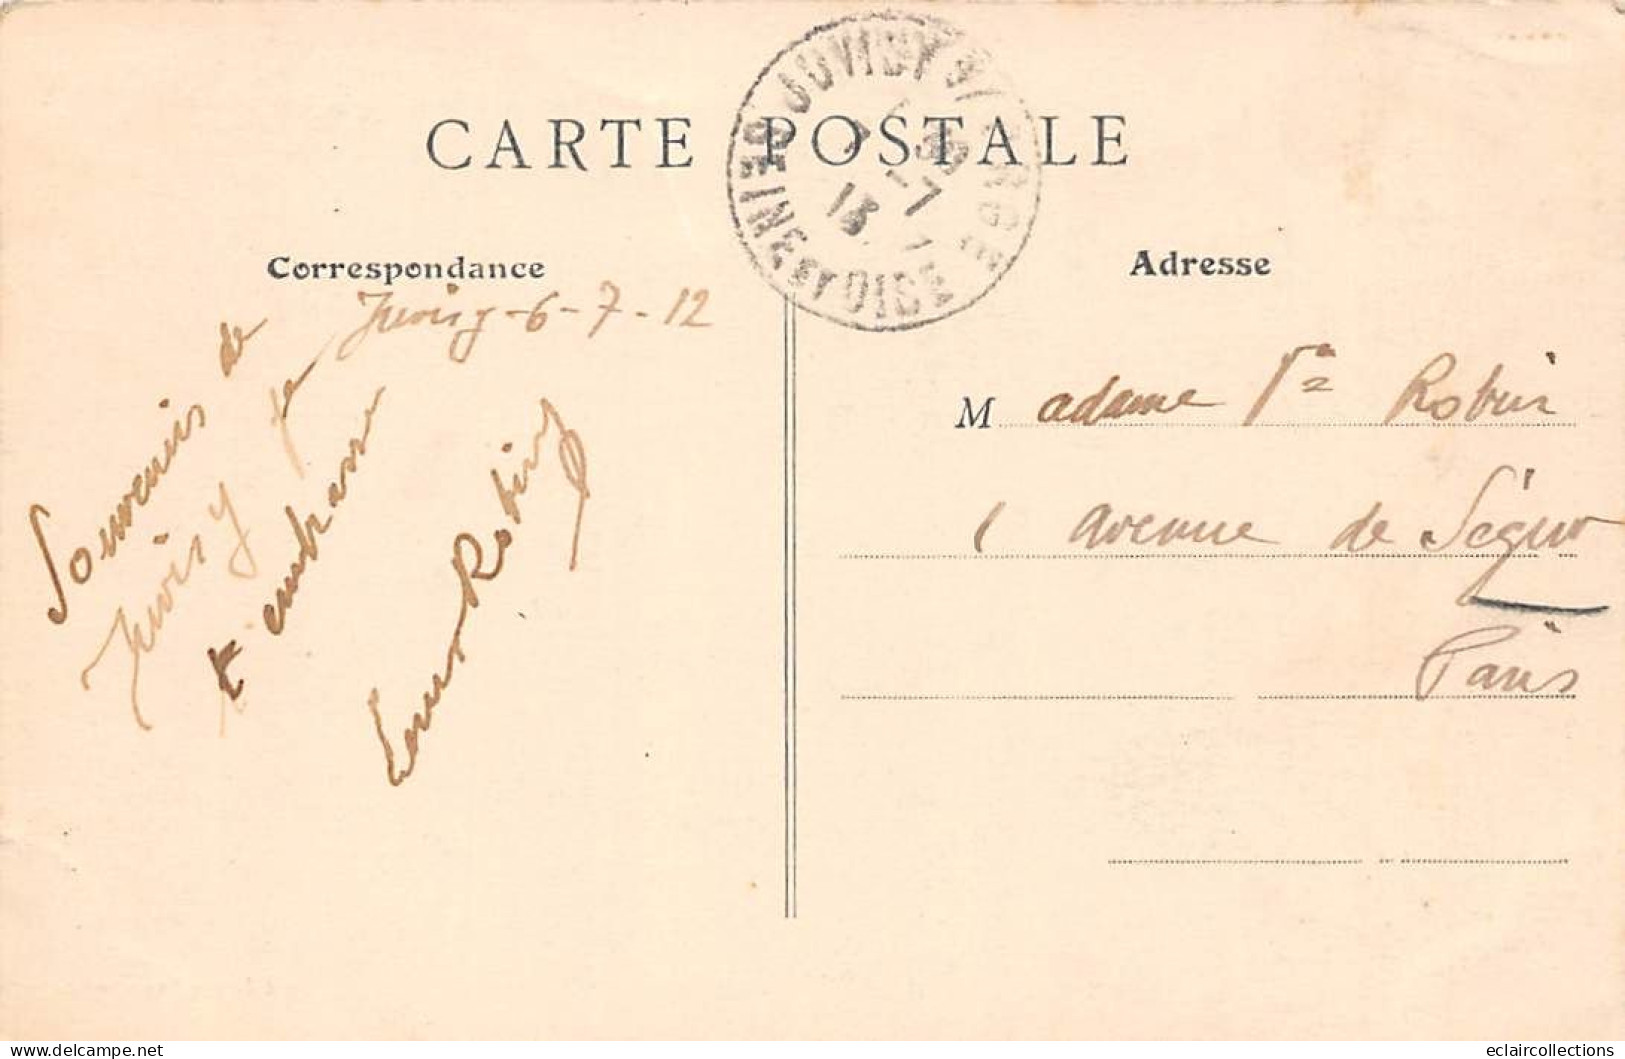 CARTE POSTALE
JUVISY S/ ORGE
7 30
-7
13
SEINE ET OISE
Correspondance
Adresse
Juvisy-6-7-12
Souvenirs de
Juvisy je
t'embrasse
Robin
Madame Robin
1 avenue de Ségur
Paris
www.delcampe.net
eclaircollections